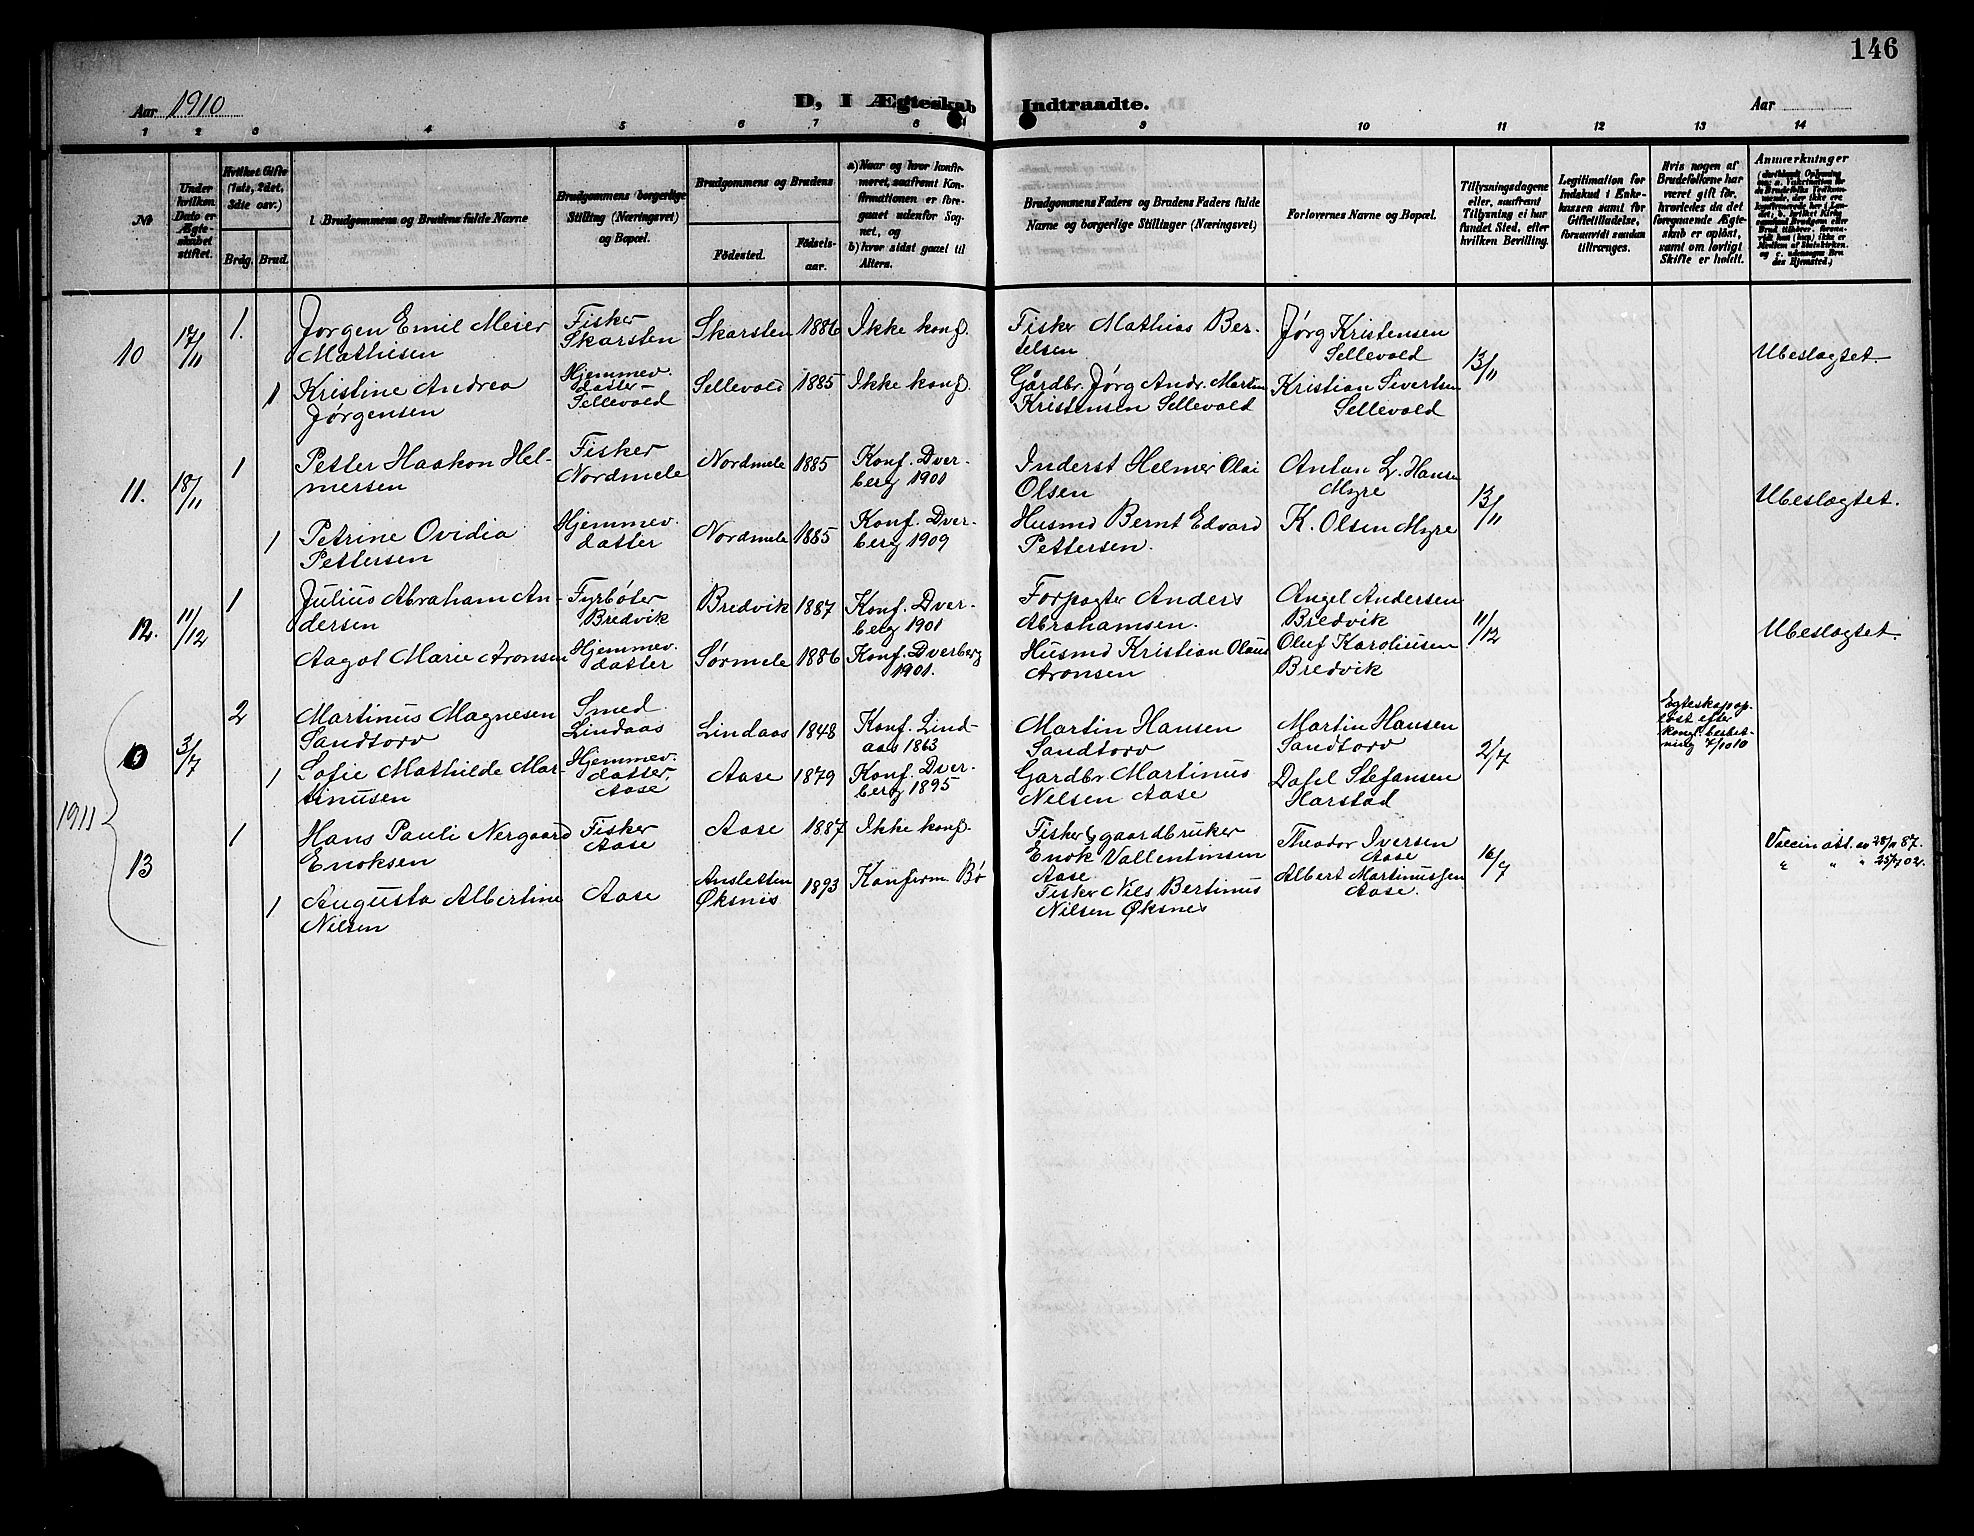 146
Aar 1910
D, I Ægteskab Indtraadte.
Aar
1 2 3 4 5 6 7 8 9 10 11 12 13 14
No
Under hvilken Dato er Ægteskabet stiftet.
Hvilket Gifte (1ste, 2det, 3die osv.)
Brdg. Brud.
Brudgommens og Brudens fulde Navne
Brudgommens borgerlige Stilling (Næringsvei) og Bopæl.
Brudgommens og Brudens
Födested.
Födsels-aar.
a) Naar og hvor konfirmeret, saafremt Konfirmationen er foregaaet udenfor Sognet, og
b) hvor sidst gaaet til Alters.
Brudgommens Faders og Brudens Faders fulde Navne og borgerlige Stillinger (Næringsvei)
Forlovernes Navne og Bopæl.
Tillysningsdagene eller, saafremt Tillysning ei har fundet Sted, efter hvilken Bevilling.
Legitimation for Indskud i Enkekassen samt for Giftetilladelse, forsaavidt saadan tiltrænges.
Hvis nogen af Brudefolkene har været gift før, hvorledes da det foregaaende Ægteskab er oplöst, samt om lovligt Skifte er holdt.
Anmærkninger
10
17/11
1.
Jørgen Emil Meier
Mathisen
Fisker
Skarsten
Skarsten
1886
Ikke konf.
Fisker Mathias Ber-
telsen
Jørg Kristensen
Sellevold
13/11
Ubeslægtet
1
Kristine Andrea
Jørgensen
Hjemmev.
datter
Sellevold
Sellevold
1885
Ikke konf.
Gårdbr. Jørg Andr. Martin
Kristensen Sellevold
Kristian Sivertsen
Sellevold
11.
18/11
1
Petter Haakon Hel-
mersen
Fisker
Nordmele
Nordmele
1885
Konf. Dver-
berg 1901
Inderst Helmer Olai
Olsen
Anton L. Hansen
Myre
13/11
Ubeslægtet.
1
Petrine Ovidia
Pettersen
Hjemmev.
datter
Nordmele
1885
Konf. Dver-
berg 1909
Husmd Bernt Edvard
Pettersen.
K. Olsen Myre
12.
11/12
1
Julius Abraham An-
dersen
Fyrbøter
Bredvik
Bredvik
1887
Konf. Dver-
berg 1901
Forpagter Anders
Abrahamsen.
Angel Andersen
Bredvik
11/12
Ubeslægtet.
Aagot Marie Aronsen
Hjemmev.
datter
Sørmele
1886
Konf. Dverberg
1901.
Husmd Kristian Olaus
Aronsen
Oluf Karoliusen
Bredvik
1911
3/7
2
Martinus Magnesen
Sandtorv
Smed
Lindaas
Lindaas
1848
Konf. Lind-
aas 1863
Martin Hansen
Sandtorv
Martin Hansen
Sandtorv
2/7
Egteskap op-
løst efter
kongl. beslut-
ning 7/10 10
1
Sofie Mathilde Mar-
tinusen
Hjemmev.
datter,
Aase
Aase
1879
Konf. Dver-
berg 1895
Gardbr. Martinus
Nilsen Aase
Dahl Stefansen
Harstad
13
1
Hans Pauli Nergaard
Enoksen
Fisker
Aase
Aase
1887
Ikke konf.
Fisker & gaardbruker
Enok Vallentinsen
Aase
Theodor Iversen
Aase
16/7
Vaccin att. av 28/11 87.
" " " 25/7 02.
1
Augusta Albertine
Nilsen
Aase
Ansletten
Øksnes
1893
Konfirm. Bø
Fisker Nils Bertinus
Nilsen Øksnes
Albert Martinussen
Aase.